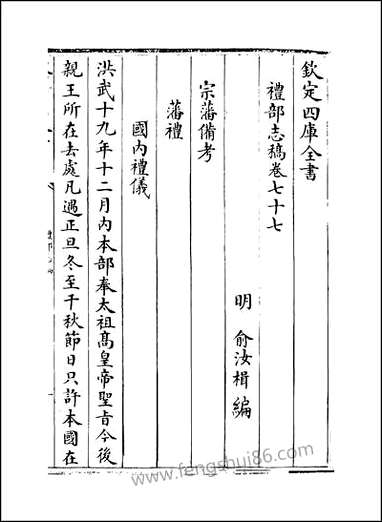 欽定四庫全書
禮部志稿卷七十七
明 俞汝楫 編
宗藩備考
藩禮
國內禮儀
洪武十九年十二月內本部奉太祖高皇帝聖旨今後
親王所在去處凡遇正旦冬至千秋節日只許本國在
www.fengshui86.com